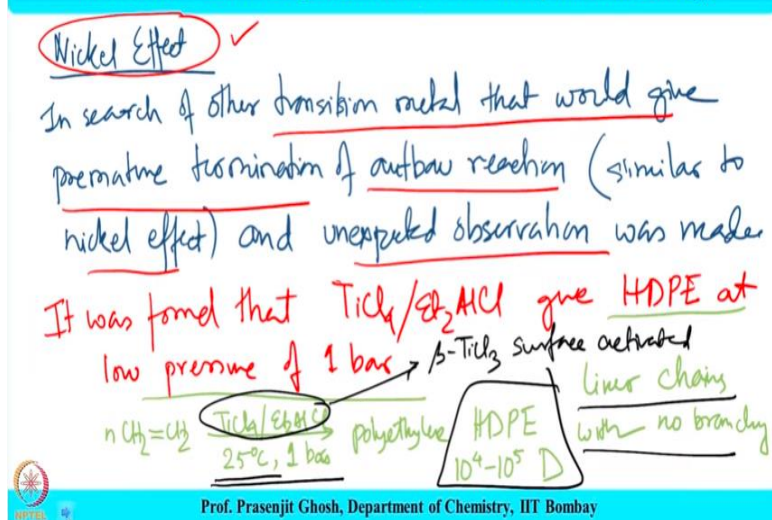 Nickel Effect ✓
In search of other transition metal that would give
premature termination of aufbau reaction (similar to
nickel effect) and unexpected observation was made
It was found that TiCl₄/Et₂AlCl give HDPE at
low pressure of 1 bar
β-TiCl₃ surface activated
n CH₂=CH₂ TiCl₄/Et₂AlCl polyethylene
25°C, 1 bar
HDPE
10⁴-10⁵ D
liner chains
with no branching
NPTEL
Prof. Prasenjit Ghosh, Department of Chemistry, IIT Bombay